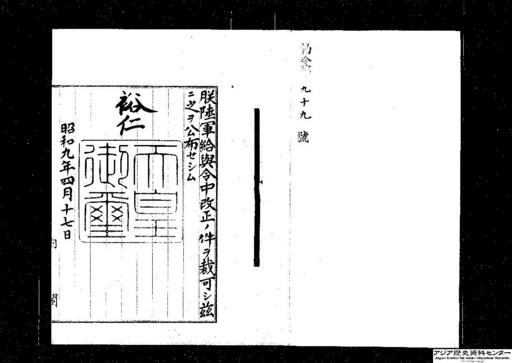 勅令第九十九號
朕陸軍給與令中改正ノ件ヲ裁可シ玆
ニ之ヲ公布セシム
裕仁
天皇
御璽
昭和九年四月十七日
内閣
アジア歴史資料センター
Japan Center for Asian Historical Records